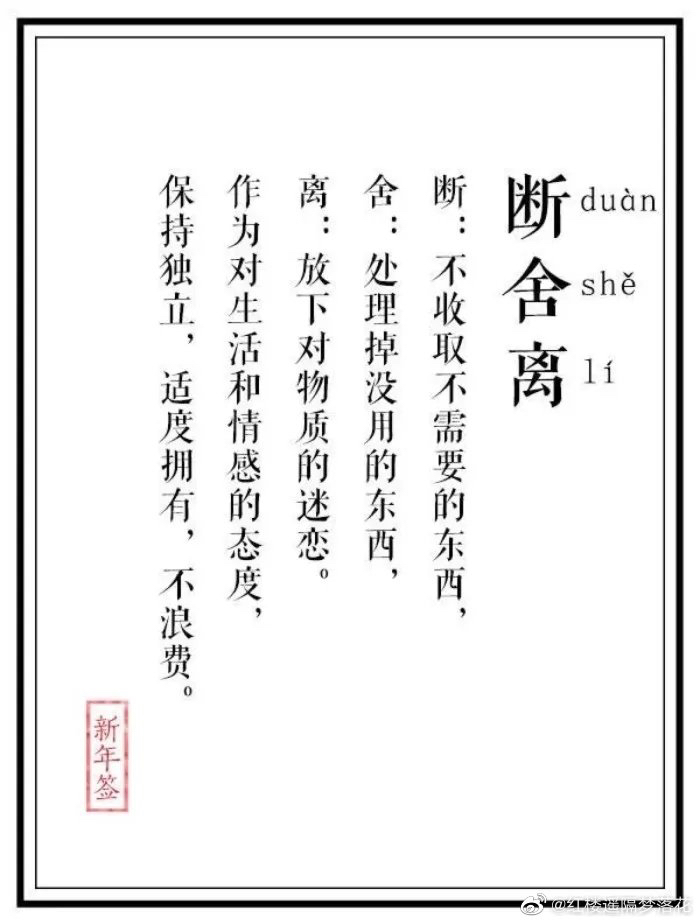 断舍离
duàn
shě
lí
断：不收取不需要的东西，
舍：处理掉没用的东西，
离：放下对物质的迷恋。
作为对生活和情感的态度，
保持独立，适度拥有，不浪费。
新年签
@红楼遥隔梦落花